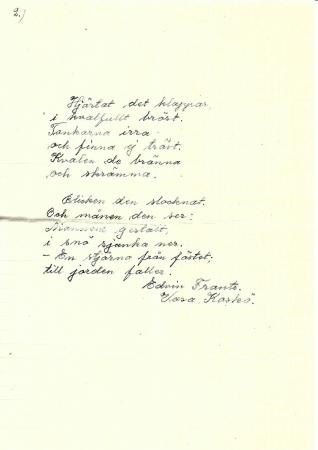 2.)
Hjärtat det klappar,
i kvalfullt bröst.
Tankarna irra
och finna ej tröst.
Kvalen de bränna
och skrämma.
Blicken den slocknat.
Och månen den ser:
Mannens gestalt,
i snö sjunka ner.
- En stjärna från fästet;
till jorden faller.
Edvin Frants.
Vasa,